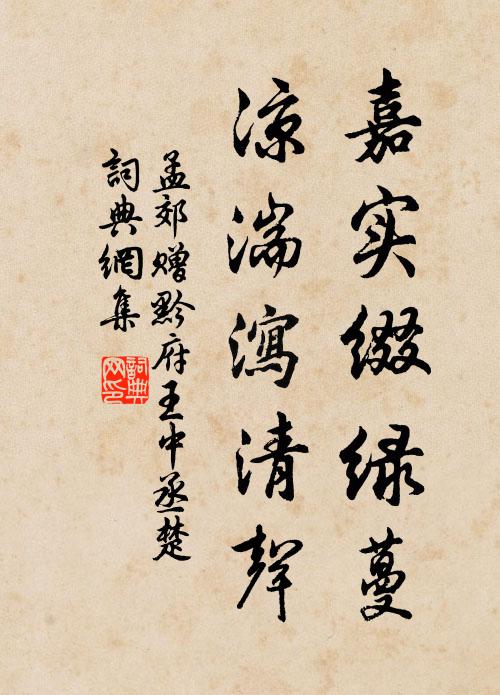 嘉实缀绿蔓
凉湍泻清声
孟郊赠黔府王中丞楚
詞典網集
詞典网印